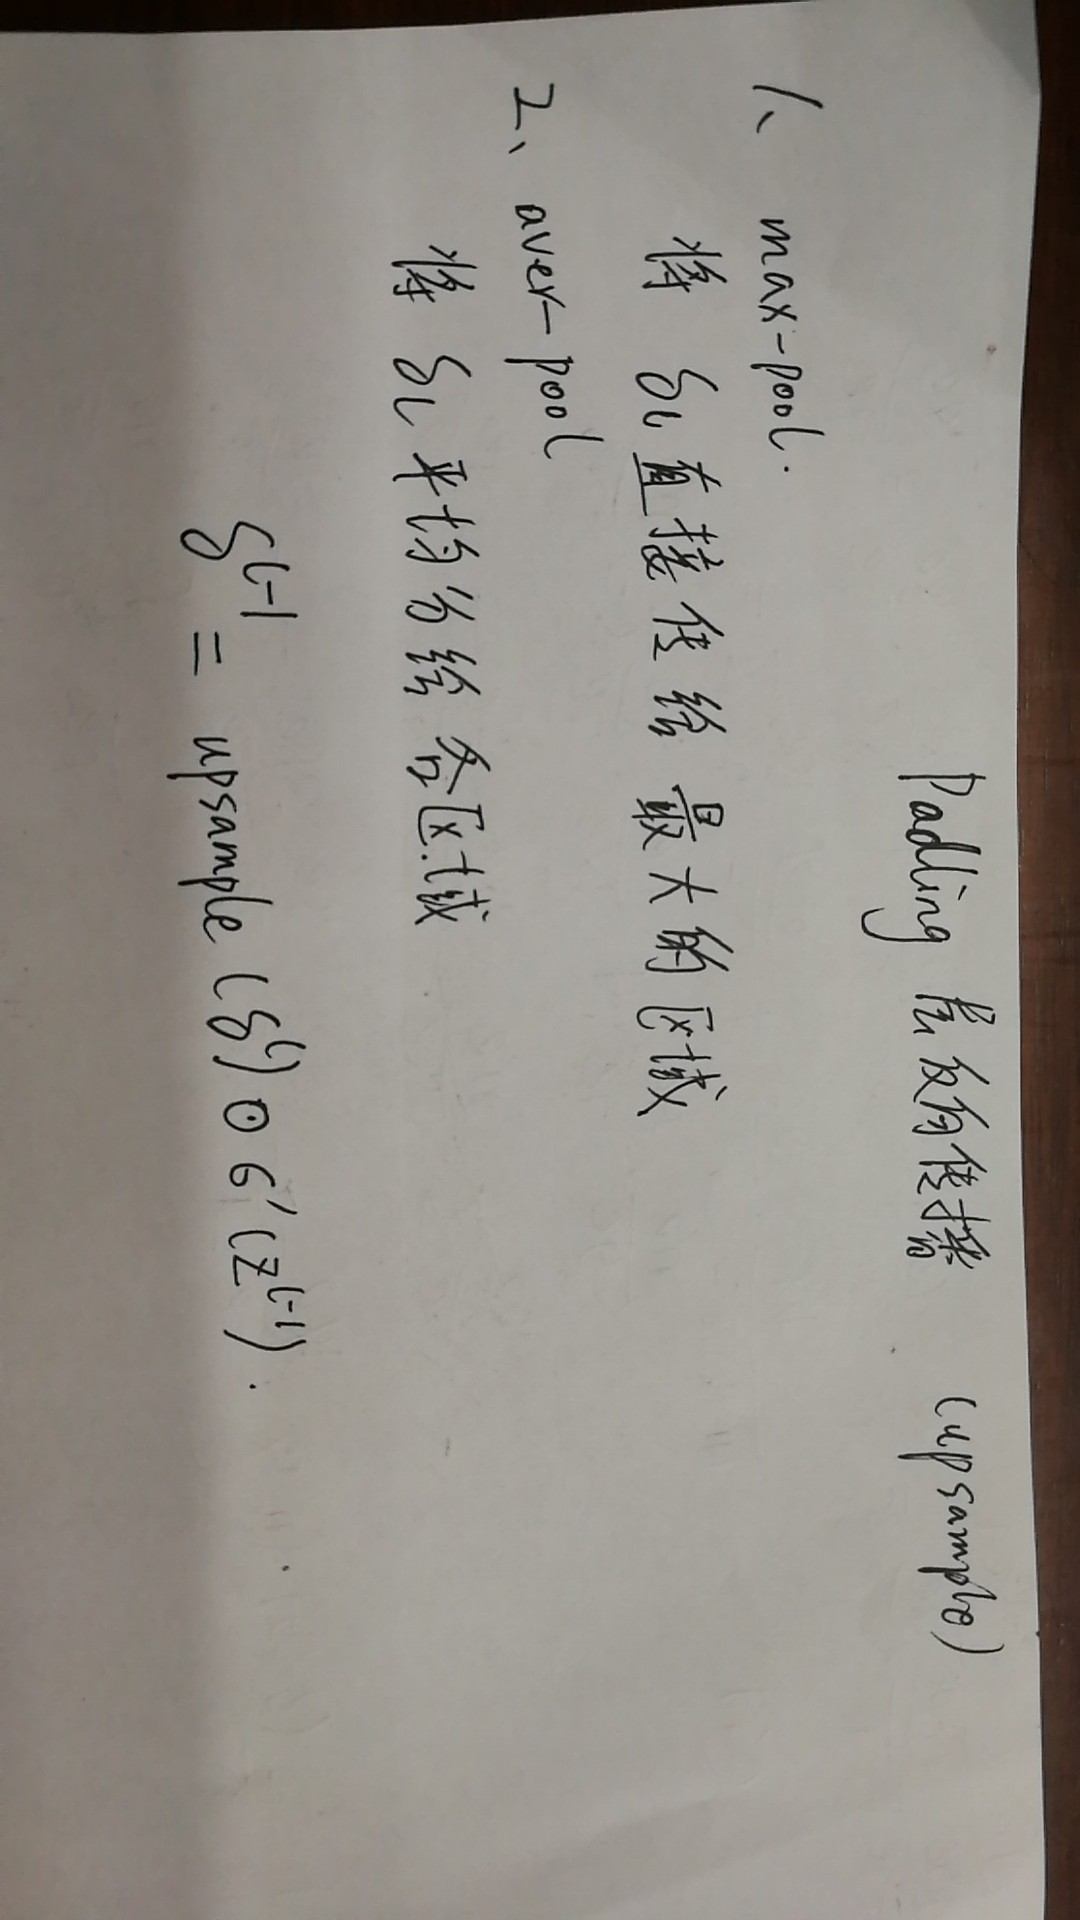 Padling 层反向传播 (upsample)
1、max-pool.
将 δL 直接传给最大的区域
2、aver-pool
将 δL 平均分给各区域
δ^{l-1} = upsample (δ^l) ⊙ σ'(z^{l-1}).